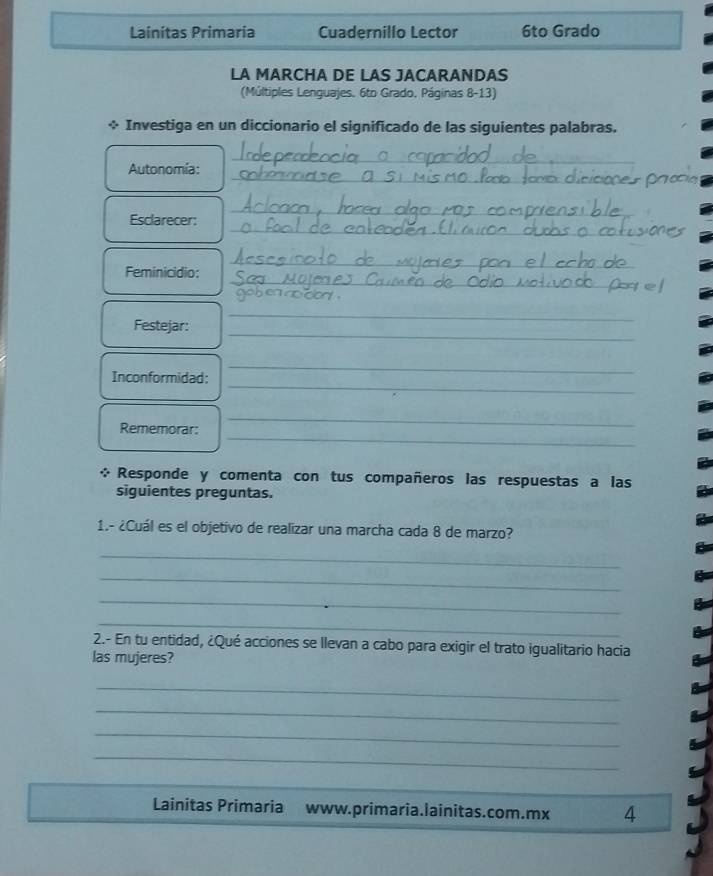 Lainitas Primaria Cuadernillo Lector 6to Grado
LA MARCHA DE LAS JACARANDAS
(Múltiples Lenguajes. 6to Grado. Páginas 8-13)
❖ Investiga en un diccionario el significado de las siguientes palabras.
Independencia o capacidad de
Autonomía:
a si mismo. Para
Aclarar, hacer algo mas comprensible
Esclarecer:
o facil de entender. dudas o
de mujeres por el echo de
Feminicidio:
Ser de odio motivado por el
Festejar:
Inconformidad:
Rememorar:
❖ Responde y comenta con tus compañeros las respuestas a las
siguientes preguntas.
1.- ¿Cuál es el objetivo de realizar una marcha cada 8 de marzo?
2.- En tu entidad, ¿Qué acciones se llevan a cabo para exigir el trato igualitario hacia
las mujeres?
Lainitas Primaria www.primaria.lainitas.com.mx 4